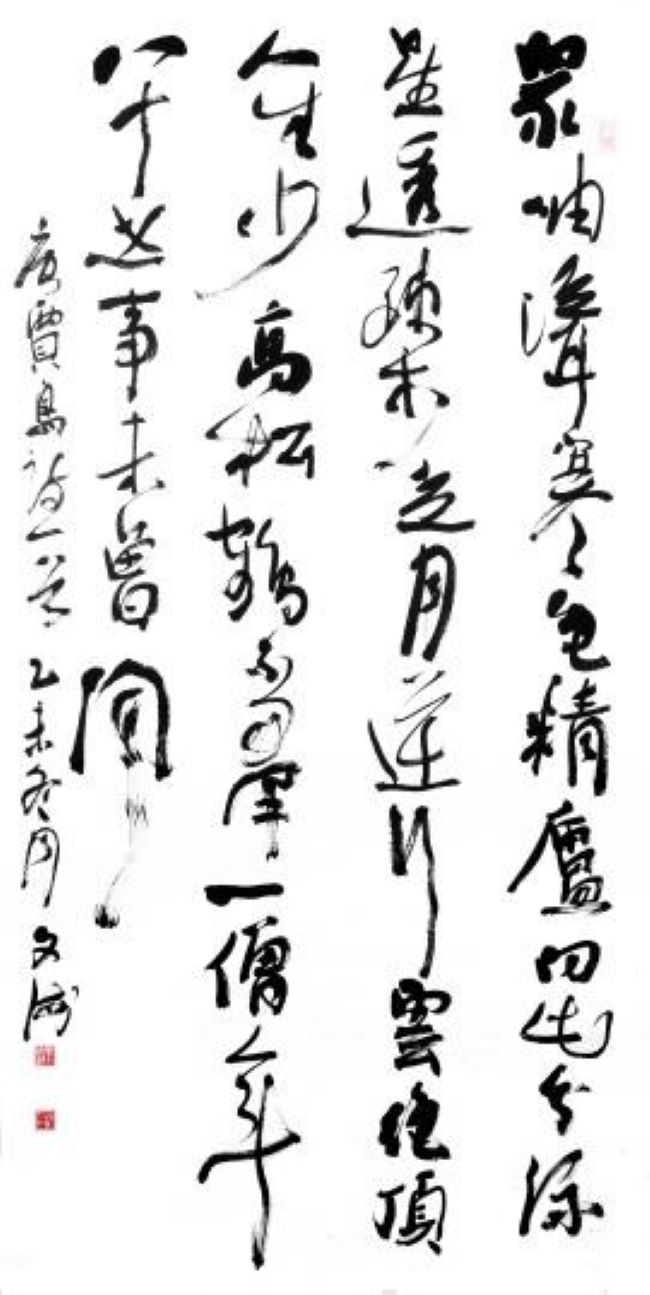 眾岫聳寒色精廬向此分流
星透疎木走月逆行雲絕頂
人來少高松鶴不群一僧年
八十世事未曾聞
唐賈島詩一首 乙未冬月 文